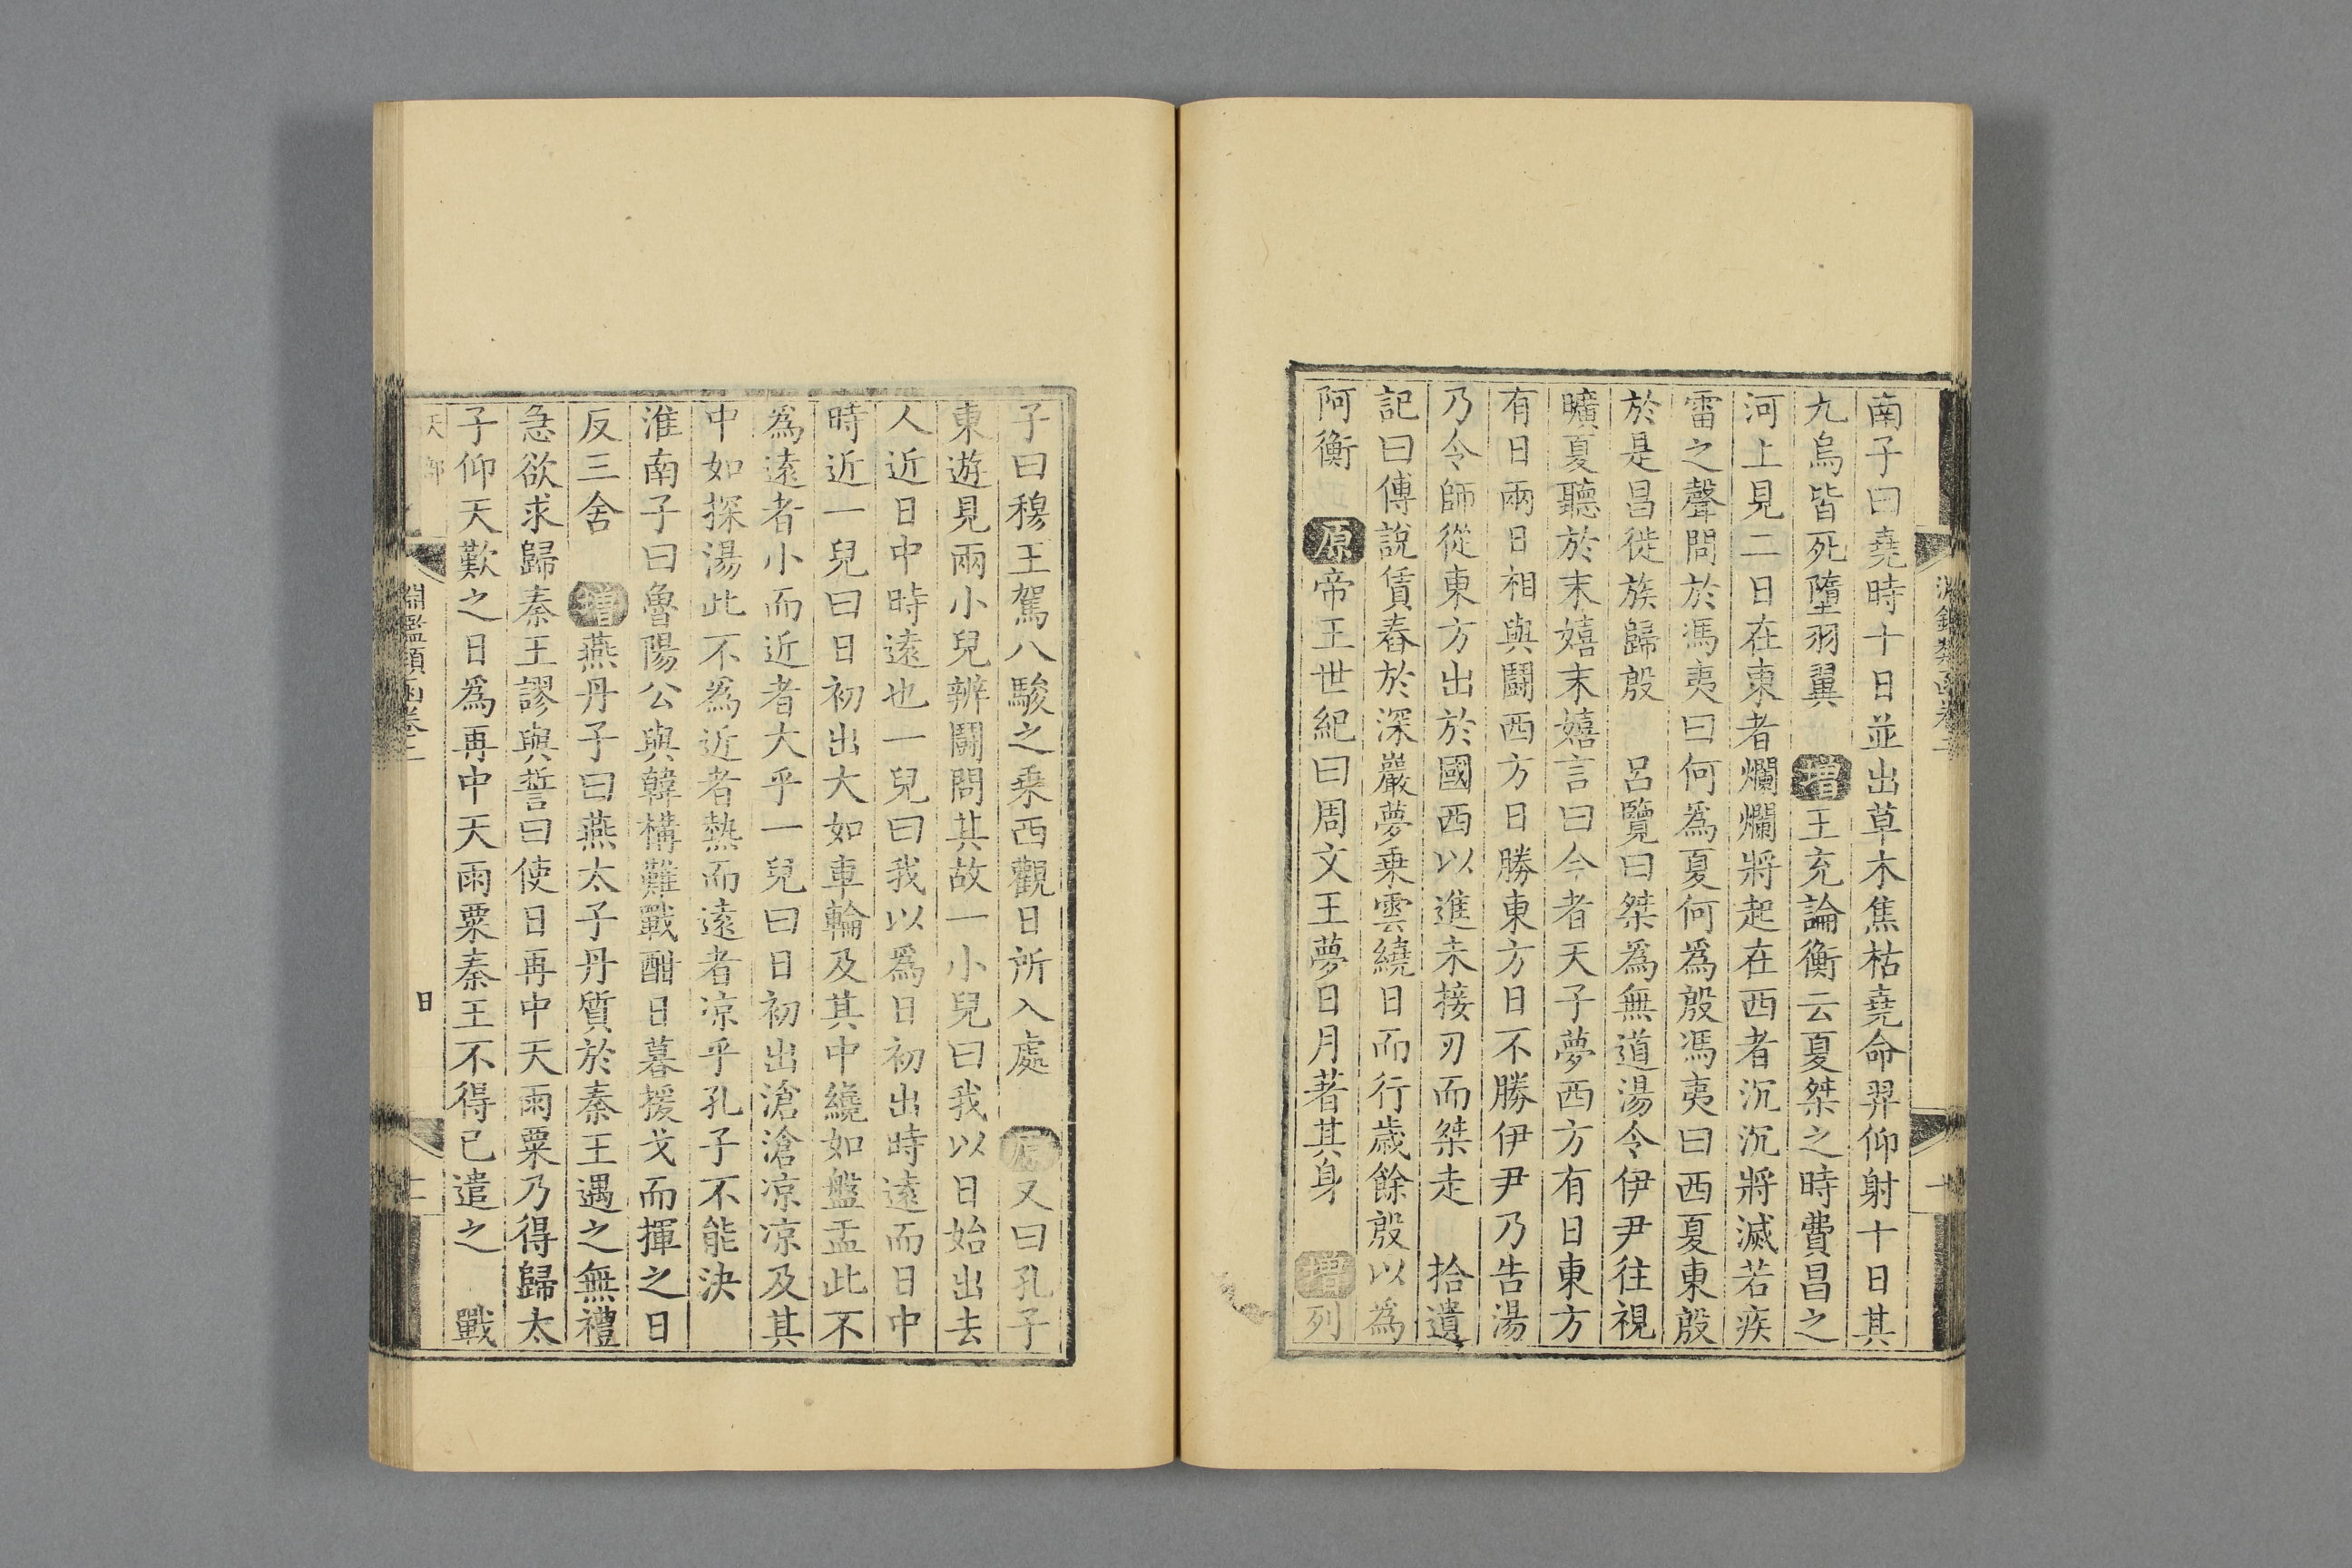 南子曰堯時十日並出草木焦枯堯命羿仰射十日其
九烏皆死墮羽翼　增王充論衡云夏桀之時費昌之
河上見二日在東者爛爛將起在西者沉沉將滅若疾
雷之聲問於馮夷曰何爲夏何爲殷馮夷曰西夏東殷
於是昌徙族歸殷　呂覽曰桀爲無道湯令伊尹往視
曠夏聽於末嬉末嬉言曰今者天子夢西方有日東方
有日兩日相與鬬西方日勝東方日不勝伊尹乃告湯
乃令師從東方出於國西以進未接刃而桀走　拾遺
記曰傅說賃舂於深巖夢乗雲繞日而行歲餘殷以為
阿衡　原帝王世紀曰周文王夢日月著其身　增列
子曰穆王駕八駿之乗西觀日所入處　原又曰孔子
東遊見兩小兒辨鬬問其故一小兒曰我以日始出去
人近日中時遠也一兒曰我以爲日初出時遠而日中
時近一兒曰日初出大如車輪及其中纔如盤盂此不
爲遠者小而近者大乎一兒曰日初出滄滄凉凉及其
中如探湯此不爲近者熱而遠者凉乎孔子不能決
淮南子曰魯陽公與韓構難戰酣日暮援戈而揮之日
反三舍　增燕丹子曰燕太子丹質於秦王遇之無禮
急欲求歸秦王謬與誓曰使日再中天雨粟乃得歸太
子仰天歎之日爲再中天雨粟秦王不得已遣之　戰
天部
淵鑑類函卷二
日
二